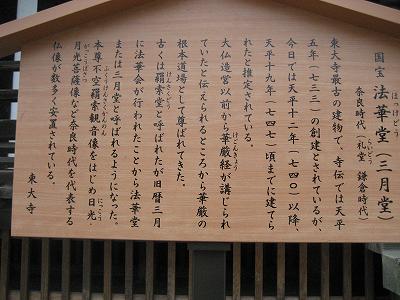 国宝 法華堂(三月堂)
ほっけどう
奈良時代(礼堂 鎌倉時代)
らいどう
東大寺最古の建物で、寺伝では天平
五年(七三三)の創建とされているが、
今日では天平十二年(七四〇)以降、
天平十九年(七四七)頃までに建てら
れたと推定されている。
大仏造営以前から華厳経が講じられ
けごんきょう
ていたと伝えられるところから華厳の
根本道場として尊ばれてきた。
古くは羂索堂と呼ばれたが旧暦三月
けんさくどう
に法華会が行われたことから法華堂
または三月堂と呼ばれるようになった。
本尊不空羂索観音像をはじめ日光・
ふくうけんさくかんのん
にっこう
月光菩薩像など奈良時代を代表する
がっこうぼさつ
仏像が数多く安置されている。
東大寺